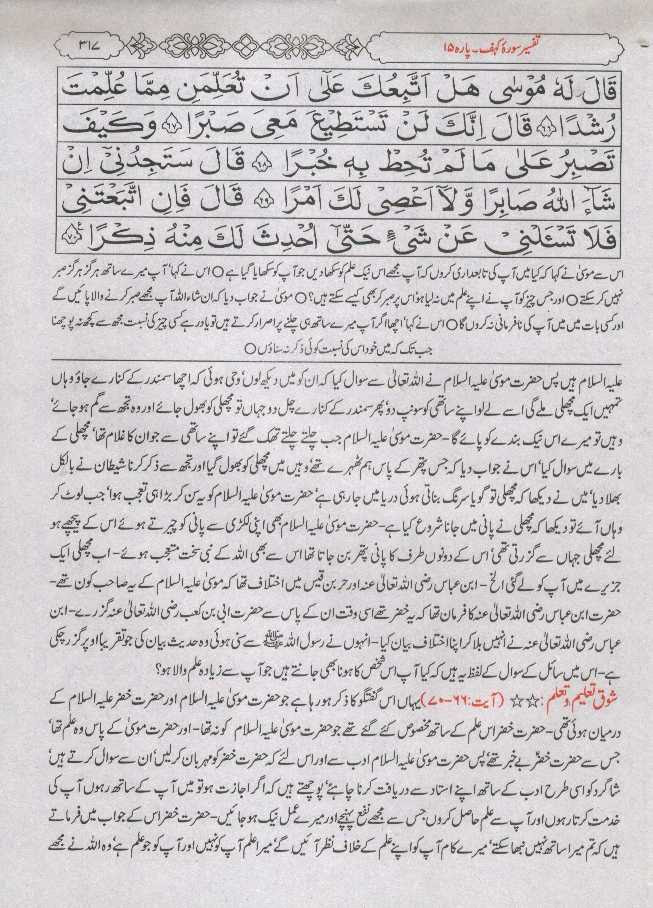 تفسیر سورۂ کہف۔ پارہ ۱۵
۳۱۷
قَالَ لَهٗ مُوْسٰی هَلْ اَتَّبِعُكَ عَلٰۤی اَنْ تُعَلِّمَنِ مِمَّا عُلِّمْتَ
رُشْدًا ﴿۶۶﴾ قَالَ اِنَّكَ لَنْ تَسْتَطِیْعَ مَعِیَ صَبْرًا ﴿۶۷﴾ وَكَیْفَ
تَصْبِرُ عَلٰی مَا لَمْ تُحِطْ بِهٖ خُبْرًا ﴿۶۸﴾ قَالَ سَتَجِدُنِیْۤ اِنْ
شَآءَ اللّٰهُ صَابِرًا وَّلَاۤ اَعْصِیْ لَكَ اَمْرًا ﴿۶۹﴾ قَالَ فَاِنِ اتَّبَعْتَنِیْ
فَلَا تَسْـَٔلْنِیْ عَنْ شَیْءٍ حَتّٰۤی اُحْدِثَ لَكَ مِنْهُ ذِكْرًا ﴿۷۰﴾ ع
اس سے موسیٰ نے کہا کہ کیا میں آپ کی تابعداری کروں کہ آپ مجھے اس نیک علم کو سکھا دیں جو آپ کو سکھایا گیا ہے ○ اس نے کہا' آپ میرے ساتھ ہرگز ہرگز صبر
نہیں کر سکتے ○ اور جس چیز کو آپ نے اپنے علم میں نہ لیا ہو' اس پر صبر کر بھی کیسے سکتے ہیں؟ ○ موسیٰ نے جواب دیا کہ ان شاءاللہ آپ مجھے صبر کرنے والا پائیں گے
اور کسی بات میں میں آپ کی نافرمانی نہ کروں گا ○ اس نے کہا' اچھا اگر آپ میرے ساتھ ہی چلنے پر اصرار کرتے ہیں تو یاد رہے کسی چیز کی نسبت مجھ سے کچھ نہ پوچھنا
جب تک کہ میں خود اس کی نسبت کوئی ذکر نہ سناؤں ○
علیہ السلام ہیں پس حضرت موسیٰ علیہ السلام نے اللہ تعالیٰ سے سوال کیا کہ ان کو میں دیکھ لوں' وحی ہوئی کہ اچھا سمندر کے کنارے جاؤ وہاں
تمہیں ایک مچھلی ملے گی اسے لے لو' اپنے ساتھی کو سونپ دو' پھر سمندر کے کنارے چل دو جہاں تو مچھلی کو بھول جائے اور وہ تجھ سے گم ہو جائے'
وہیں تو میرے اس نیک بندے کو پائے گا۔ حضرت موسیٰ علیہ السلام جب چلتے چلتے تھک گئے تو اپنے ساتھی سے جو ان کا غلام تھا' مچھلی کے
بارے میں سوال کیا' اس نے جواب دیا کہ جس پتھر کے پاس ہم ٹھہرے تھے' وہیں میں مچھلی کو بھول گیا اور تجھ سے ذکر کرنا شیطان نے بالکل
بھلا دیا' میں نے دیکھا کہ مچھلی تو گویا سرنگ بناتی ہوئی دریا میں جا رہی ہے' حضرت موسیٰ علیہ السلام کو یہ سن کر بڑا ہی تعجب ہوا' جب لوٹ کر
وہاں آئے تو دیکھا کہ مچھلی نے پانی میں جانا شروع کیا ہے۔ حضرت موسیٰ علیہ السلام بھی اپنی لکڑی سے پانی کو چیرتے ہوئے اس کے پیچھے ہو
لئے' مچھلی جہاں سے گزرتی تھی' اس کے دونوں طرف کا پانی پتھر بن جاتا تھا اس سے بھی اللہ کے نبی سخت متعجب ہوئے۔ اب مچھلی ایک
جزیرے میں آپ کو لے گئی الخ۔ ابن عباس رضی اللہ تعالیٰ عنہ اور حر بن قیس میں اختلاف تھا کہ موسیٰ علیہ السلام کے یہ صاحب کون تھے۔
حضرت ابن عباس رضی اللہ تعالیٰ عنہ کا فرمان تھا کہ یہ خضر تھے' اسی وقت ان کے پاس سے حضرت ابی بن کعب رضی اللہ تعالیٰ عنہ گزرے۔ ابن
عباس رضی اللہ تعالیٰ عنہ نے انہیں بلا کر اپنا اختلاف بیان کیا۔ انہوں نے رسول اللہ ﷺ سے سنی ہوئی وہ حدیث بیان کی جو تقریباً اوپر گزر چکی
ہے۔ اس میں سائل کے سوال کے لفظ یہ ہیں کہ کیا آپ اس شخص کا ہونا بھی جانتے ہیں جو آپ سے زیادہ علم والا ہو؟
شوق تعلیم و تعلم : ☆☆ (آیت:۶۶-۷۰) یہاں اس گفتگو کا ذکر ہو رہا ہے جو حضرت موسیٰ علیہ السلام اور حضرت خضر علیہ السلام کے
درمیان ہوئی تھی۔ حضرت خضر اس علم کے ساتھ مخصوص کئے گئے تھے جو حضرت موسیٰ علیہ السلام کو نہ تھا۔ اور حضرت موسیٰ کے پاس وہ علم تھا'
جس سے حضرت خضرؑ بے خبر تھے' پس حضرت موسیٰ علیہ السلام ادب سے اور اس لئے کہ حضرت خضر کو مہربان کر لیں' ان سے سوال کرتے ہیں'
شاگرد کو اسی طرح ادب کے ساتھ اپنے استاد سے دریافت کرنا چاہئے' پوچھتے ہیں کہ اگر اجازت ہو تو میں آپ کے ساتھ رہوں آپ کی
خدمت کرتا رہوں اور آپ سے علم حاصل کروں' جس سے مجھے نفع پہنچے اور میرے عمل نیک ہو جائیں۔ حضرت خضر اس کے جواب میں فرماتے
ہیں کہ تم میرا ساتھ نہیں نبھا سکتے' میرے کام آپ کو اپنے علم کے خلاف نظر آئیں گے' میرا علم آپ کو نہیں اور آپ کو جو علم ہے' وہ اللہ نے مجھے